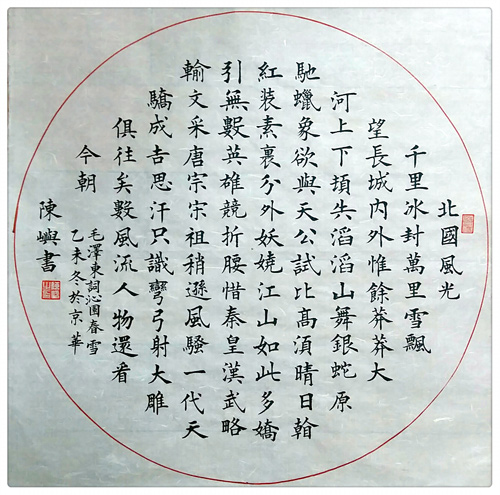 北國風光
千里冰封萬里雪飄
望長城内外惟餘莽莽大
河上下頓失滔滔山舞銀蛇原
馳蠟象欲與天公試比高湏晴日
紅装素裹分外妖嬈江山如此多嬌
引無數英雄競折腰惜秦皇漢武略
輸文采唐宗宋祖稍遜風騷一代天
驕成吉思汗只識彎弓射大雕
俱往矣數風流人物還看
今朝
毛澤東詞沁園春雪
乙未冬於京華
陳嶼書